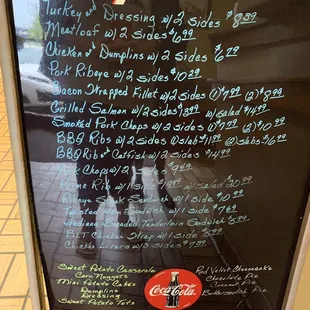 Turkey w/ Dressing w/2 sides $8.39
Meatloaf w/2 sides $6.99
Chicken w/ Dumplins w/2 sides $6.79
Pork Ribeye w/2 sides $10.29
Bacon Wrapped Fillet w/2 sides (1) $7.99 (2) $8.99
Grilled Salmon w/2 sides w/salad
Smoked Pork Chops w/2 sides (1) $7.99 (2) $10.99
BBQ Ribs w/2 sides
BBQ Rib w/ Catfish w/2 sides
Pork Chops w/2 sides
Prime Rib w/1 side w/ Salad
Ribeye Steak Sandwich w/1 side
Twisted Ham Sandwich w/1 side
Indiana Breaded Tenderloin Sandwich
BLT Chicken Strap w/1 side
Chicken Livers w/2 sides $7.99
Sweet Potato Casserole
Corn Nuggets
Mini Potato Cakes
Dumplins
Dressing
Sweet Potato Tots
Coca-Cola
Red Velvet Cheesecake
Chocolate Pie
Coconut Pie
Butterscotch Pie